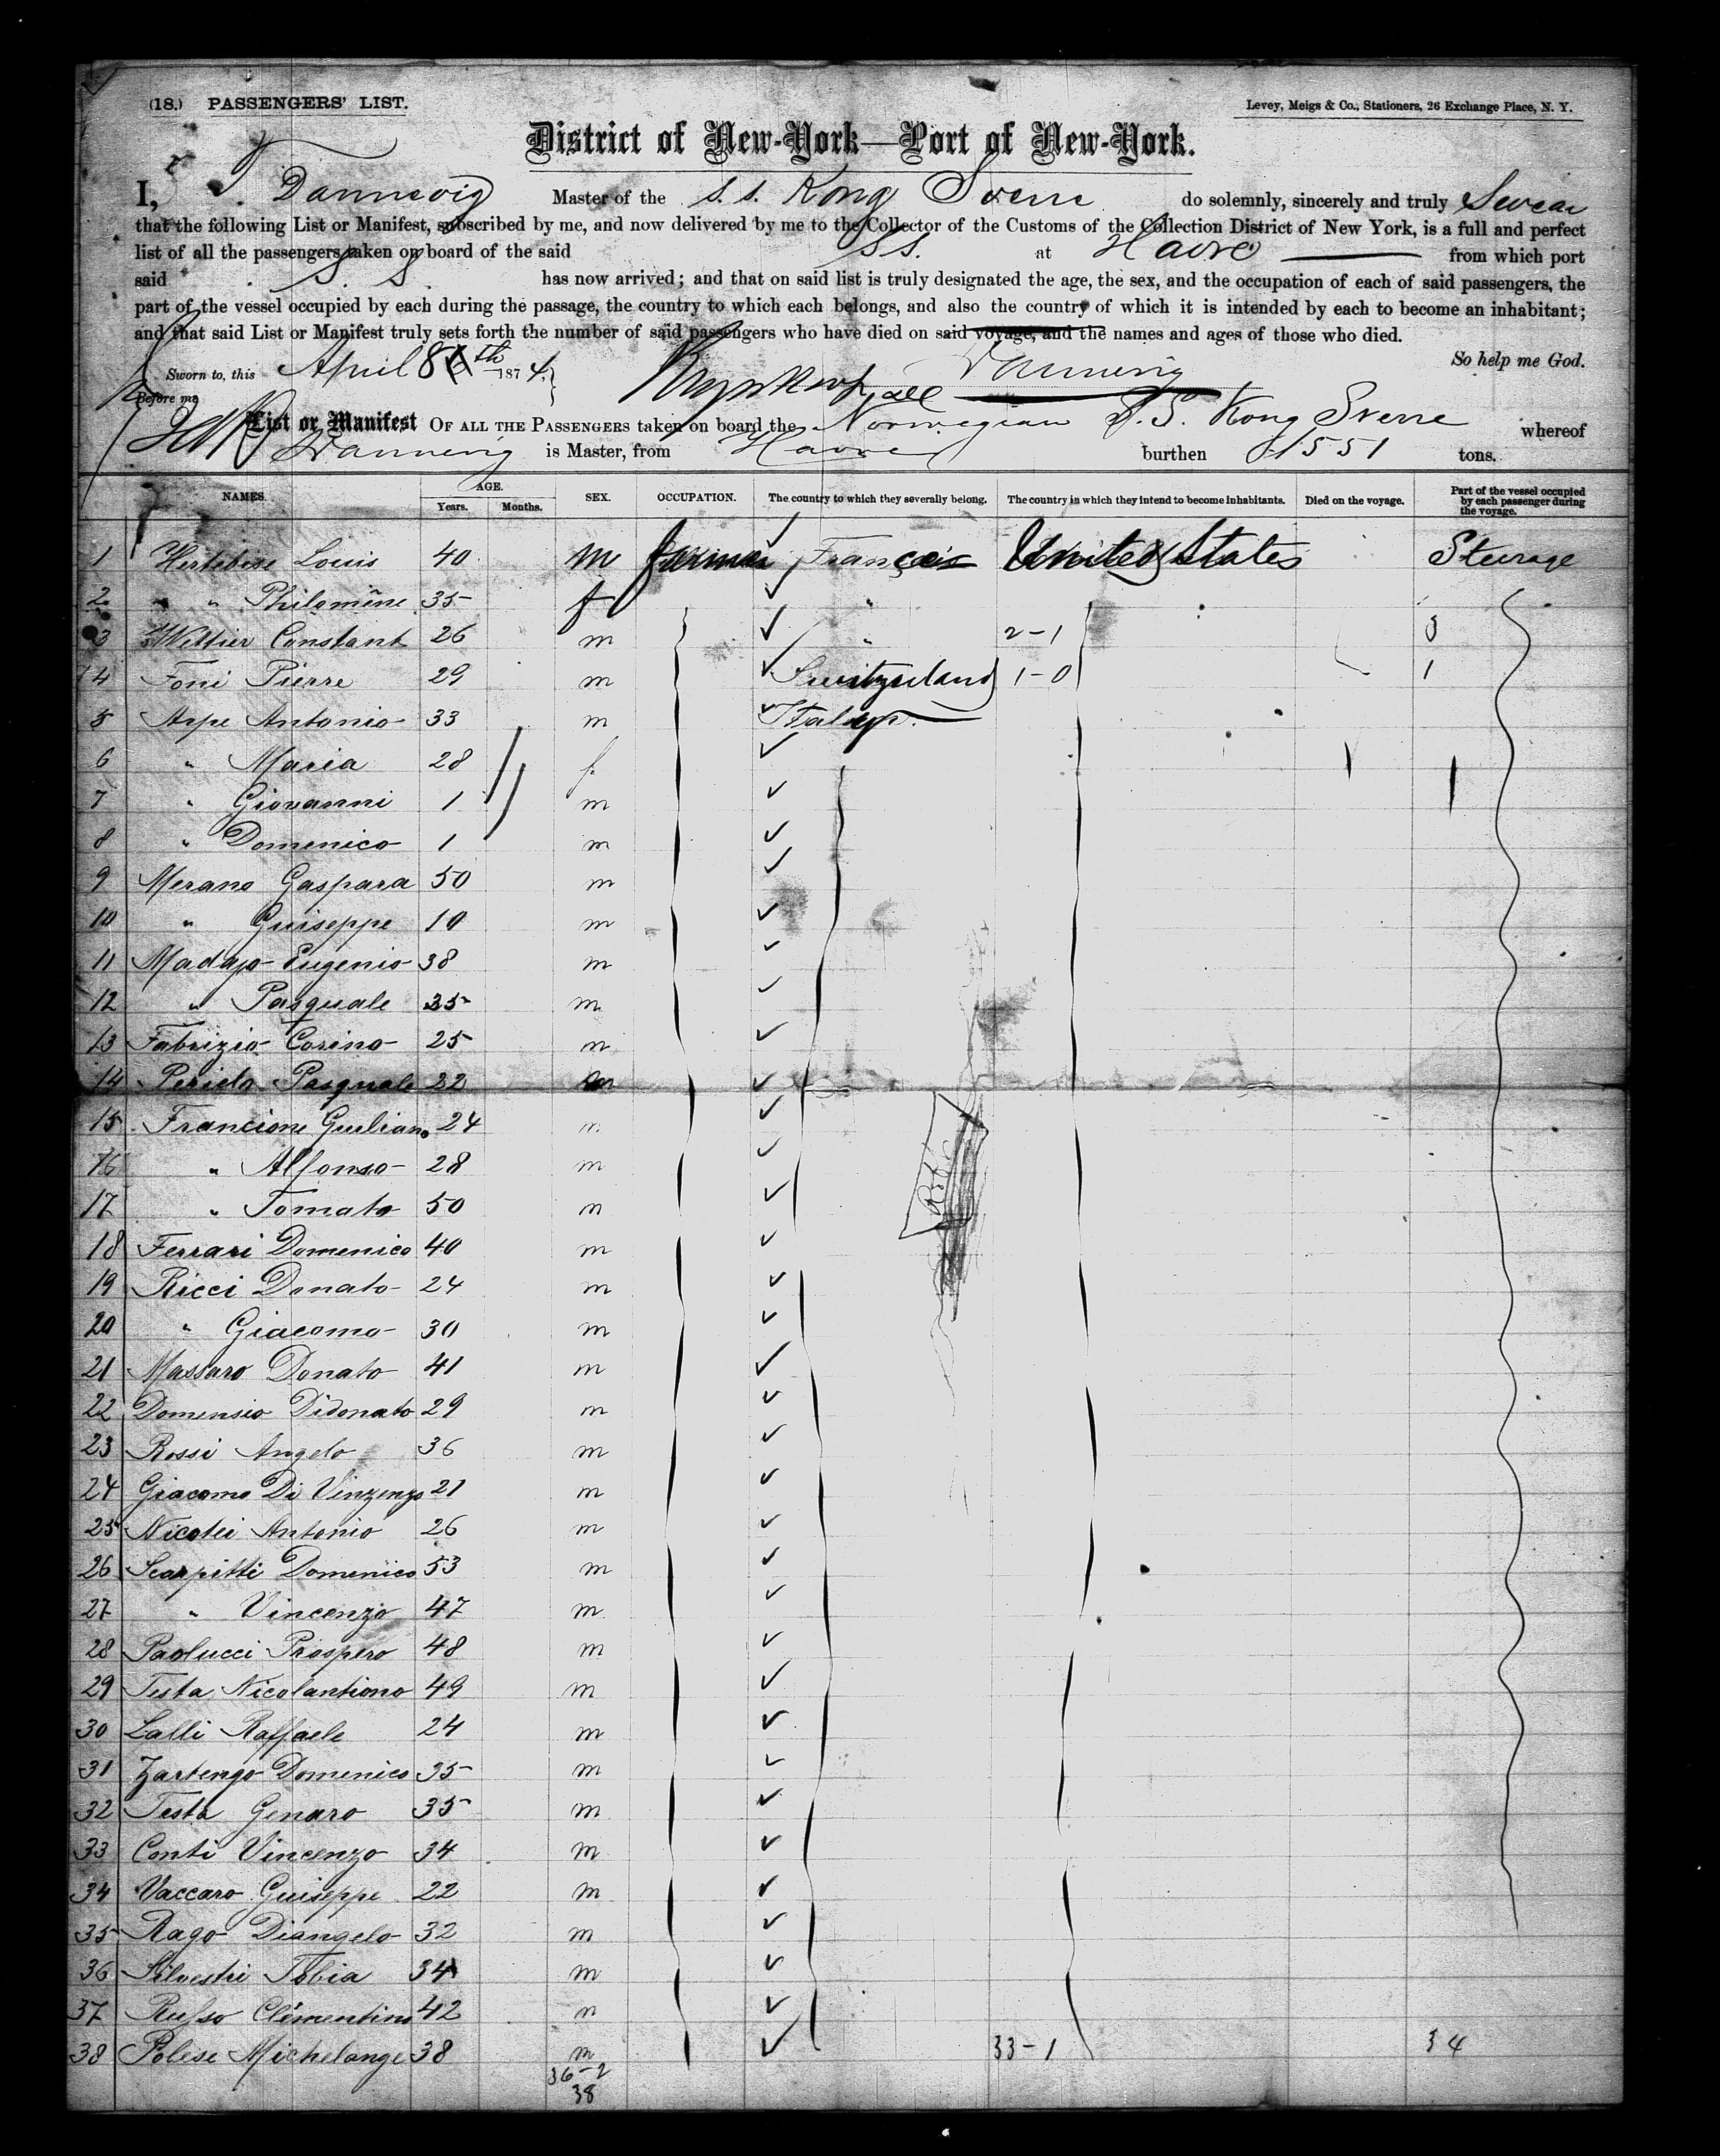 (18.) PASSENGERS' LIST.
Levey, Meigs & Co., Stationers, 26 Exchange Place, N. Y.
District of New-York—Port of New-York.
I, Dannevig Master of the S.S. Kong Sverre do solemnly, sincerely and truly Swear
that the following List or Manifest, subscribed by me, and now delivered by me to the Collector of the Customs of the Collection District of New York, is a full and perfect
list of all the passengers taken on board of the said SS. at Havre from which port
said S. S. has now arrived; and that on said list is truly designated the age, the sex, and the occupation of each of said passengers, the
part of the vessel occupied by each during the passage, the country to which each belongs, and also the country of which it is intended by each to become an inhabitant;
and that said List or Manifest truly sets forth the number of said passengers who have died on said voyage, and the names and ages of those who died.
So help me God.
Sworn to, this April 8th 1874.
Before me
List or Manifest OF ALL THE PASSENGERS taken on board the Norwegian S.S. Kong Sverre whereof
is Master, from Havre burthen 1551 tons.
NAMES. AGE. Years. Months. SEX. OCCUPATION. The country to which they severally belong. The country in which they intend to become inhabitants. Died on the voyage. Part of the vessel occupied by each passenger during the voyage.
1 Hertebise Louis 40 m farmer Français United States Steerage
2 " " Philomène 35 f "
3 Wettier Constant 26 m " 2-1 3
4 Foni Pierre 29 m Switzerland 1-0 1
5 Arpe Antonio 33 m Italy
6 " Maria 28 f.
7 " Giovanni 1 m
8 " Domenico 1 m
9 Merano Gaspara 50 m
10 " Guiseppe 10 m
11 Madajo Eugenio 38 m
12 " Pasquale 35 m
13 Fabrizio Corino 25 m
14 Perida Pasquale 22 m
15 Francione Guiliano 24 m
16 " Alfonso 28 m
17 " Tomato 50 m
18 Ferrari Domenico 40 m
19 Ricci Donato 24 m
20 " Giacomo 30 m
21 Massaro Donato 41 m
22 Domensio Didonato 29 m
23 Rossi Angelo 36 m
24 Giacomo Di Vinzenzo 21 m
25 Nicolei Antonio 26 m
26 Scarpitti Domenico 53 m
27 " Vincenzo 47 m
28 Paolucci Prospero 48 m
29 Testa Nicolantiono 49 m
30 Lalli Raffaele 24 m
31 Zartengo Domenico 35 m
32 Testa Genaro 35 m
33 Conti Vincenzo 34 m
34 Vaccaro Guiseppe 22 m
35 Rago Diangelo 32 m
36 Silvestri Tobia 34 m
37 Russo Clémentino 42 m
38 Polese Michelange 38 m 33-1 34
36-2
38